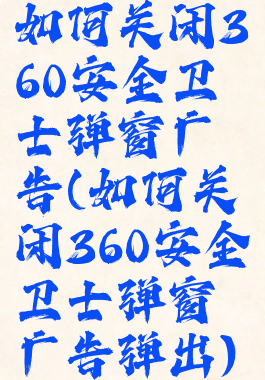 如何关闭3
60安全卫
士弹窗广
告(如何关
闭360安全
卫士弹窗
广告弹出)